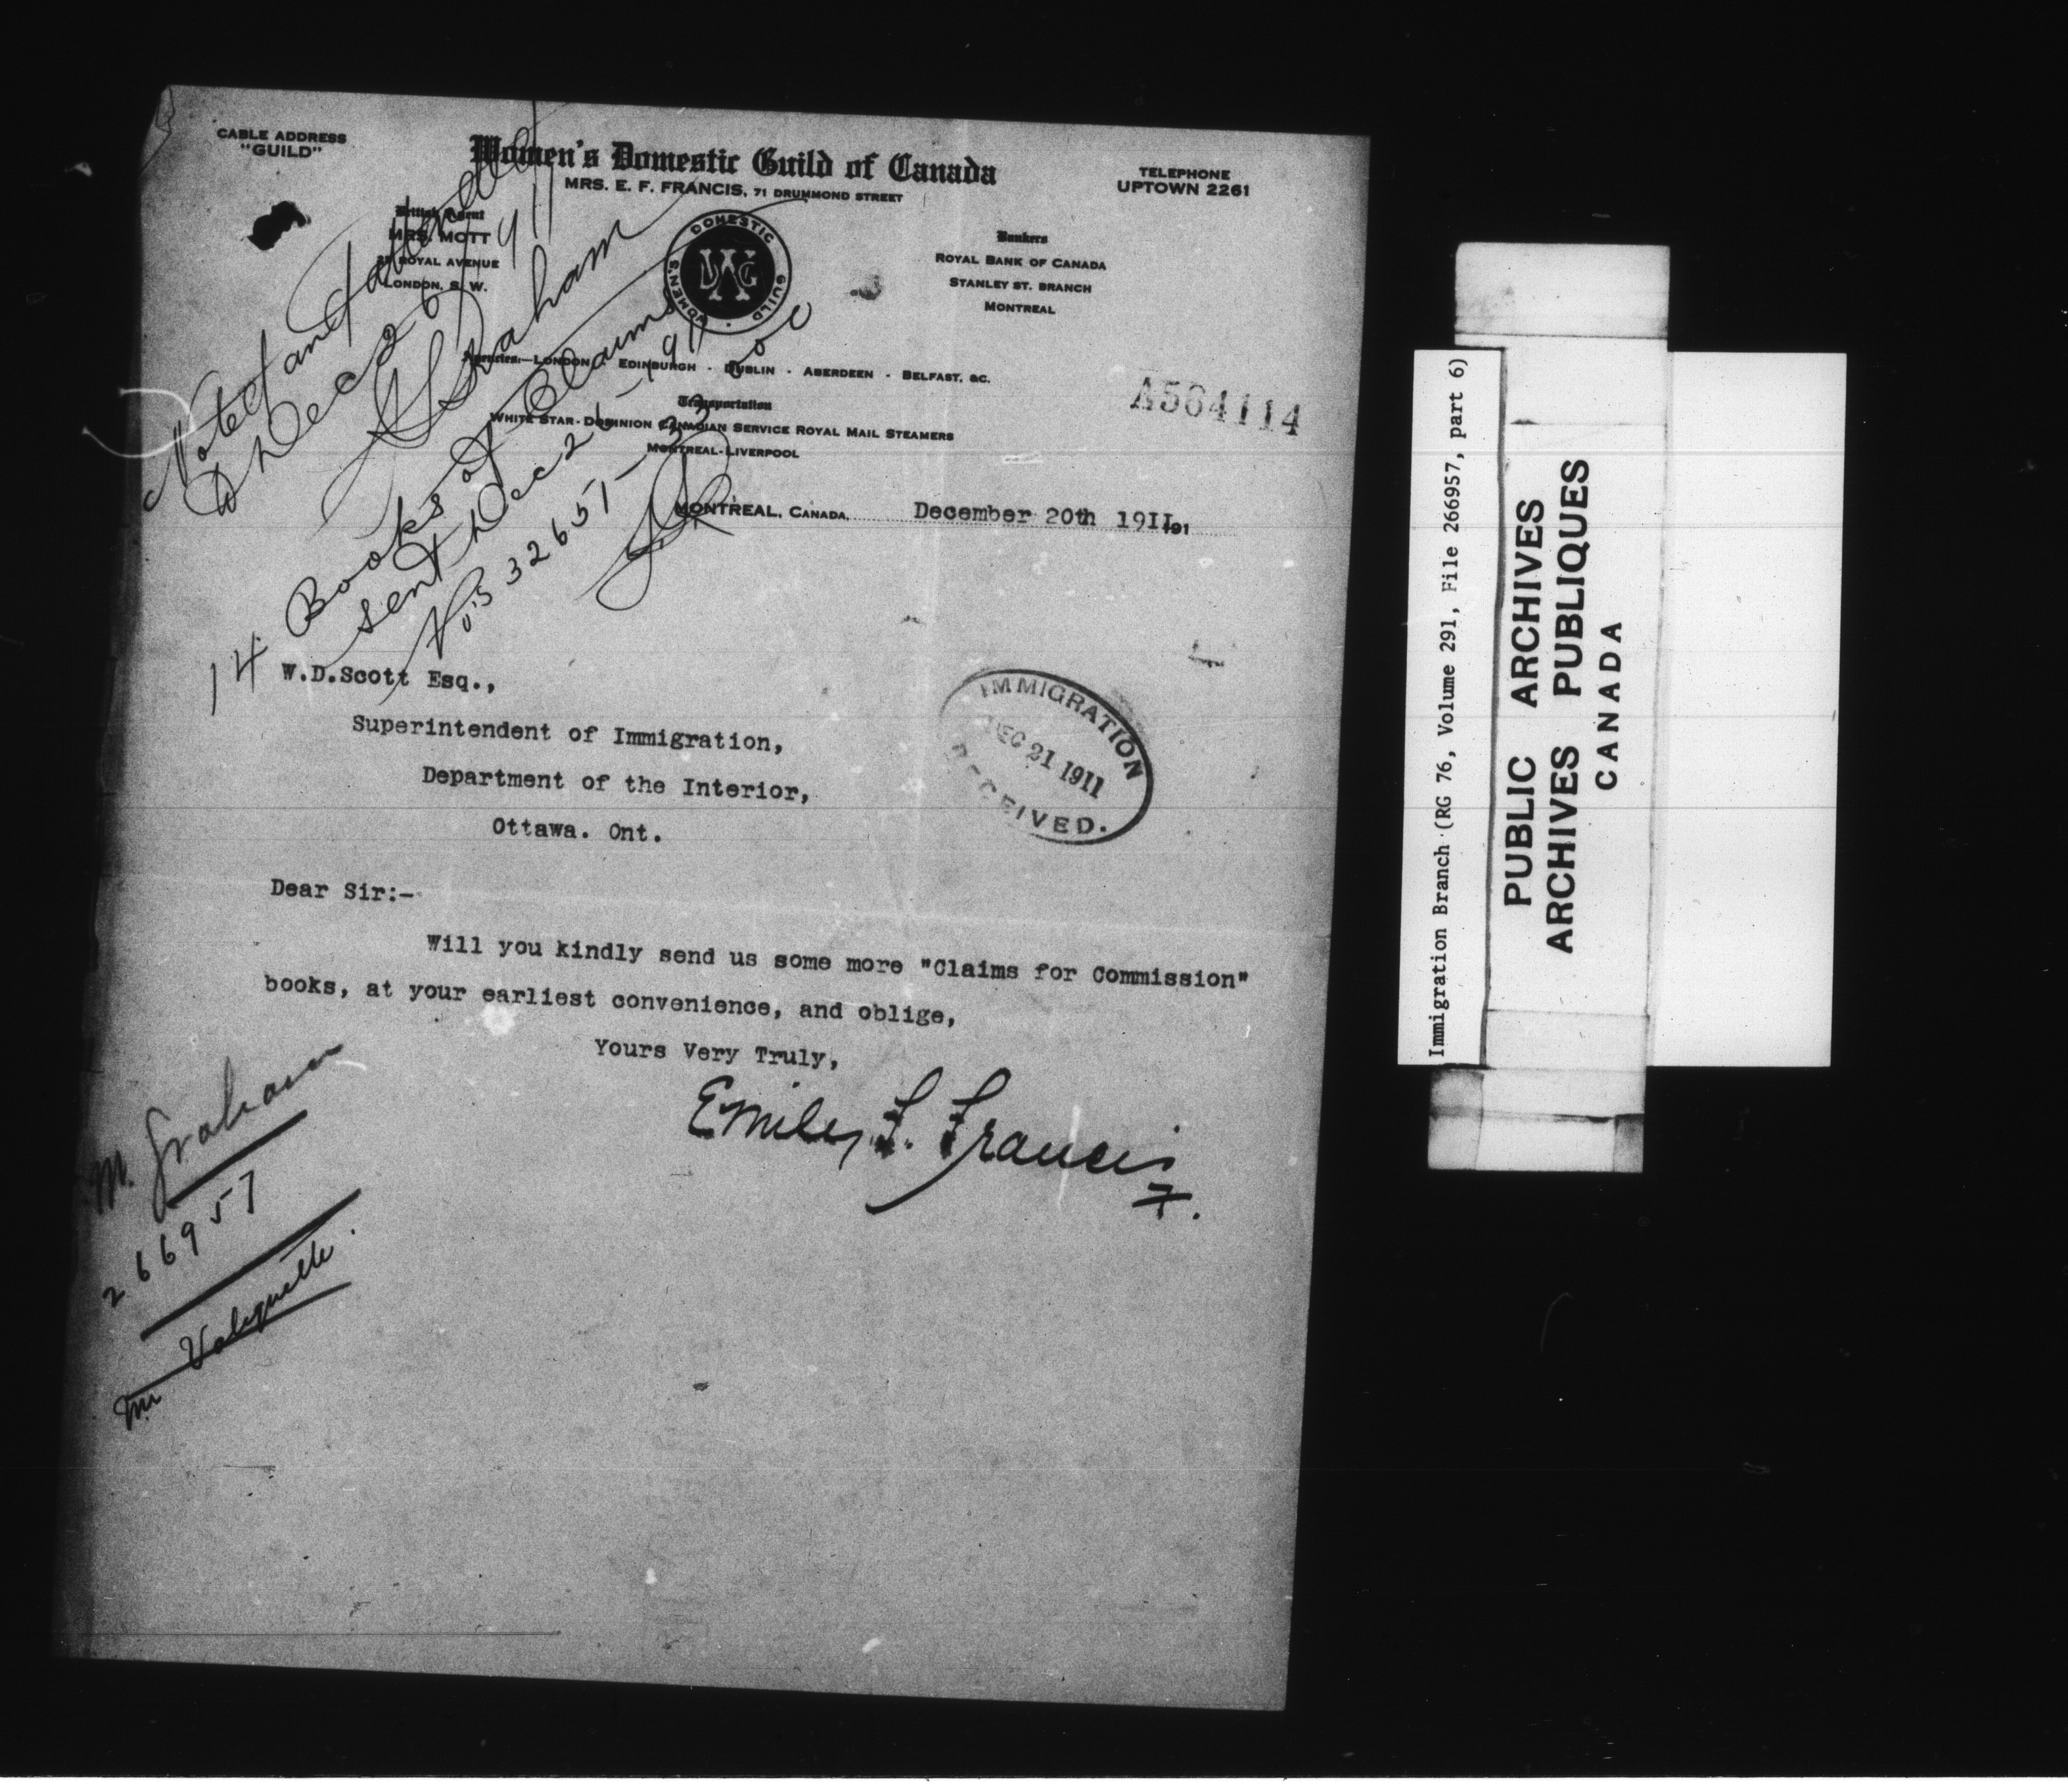 CABLE ADDRESS
"GUILD"
Women's Domestic Guild of Canada
MRS. E. F. FRANCIS, 71 DRUMMOND STREET
TELEPHONE
UPTOWN 2261
British Agent
MRS. MOTT
ROYAL AVENUE
LONDON, S. W.
WOMEN'S DOMESTIC GUILD
WDG
Bankers
ROYAL BANK OF CANADA
STANLEY ST. BRANCH
MONTREAL
Agencies:—LONDON · EDINBURGH · DUBLIN · ABERDEEN · BELFAST, &C.
Transportation
WHITE STAR-DOMINION CANADIAN SERVICE ROYAL MAIL STEAMERS
MONTREAL-LIVERPOOL
A564114
Noted and
Dec 26/1911
Graham
14 Books of Claims
sent Dec 26-1911
No's 32651-33
MONTREAL, CANADA, December 20th 1911 191
W.D.Scott Esq.,
Superintendent of Immigration,
Department of the Interior,
Ottawa. Ont.
IMMIGRATION
DEC 21 1911
RECEIVED.
Dear Sir:-
Will you kindly send us some more "Claims for Commission"
books, at your earliest convenience, and oblige,
Yours Very Truly,
Emily F. Francis
M. Graham
266957
M. Valiquette.
Immigration Branch (RG 76, Volume 291, File 266957, part 6)
PUBLIC ARCHIVES
ARCHIVES PUBLIQUES
CANADA